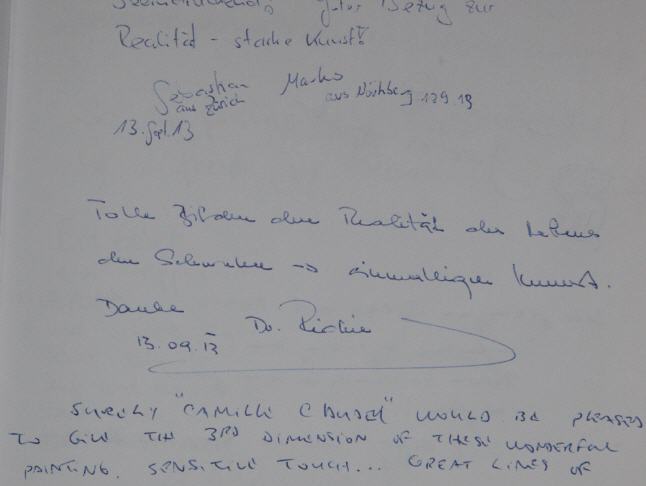 guter Bezug zur
Realität - starke Kunst!
Sebastian Marko
aus Zürich aus Nürnberg 129.13
13. Sept. 13
Tolle Bilder der Realität des Lebens
der → Kunst.
Danke
Dr.
13.09.13
SURELY "CAMILLE CLAUDEL" WOULD BE PLEASED
TO GIVE TH 3RD DIMENSION OF THESE WONDERFUL
PAINTING. SENSITIVE TOUCH... GREAT LINES OF